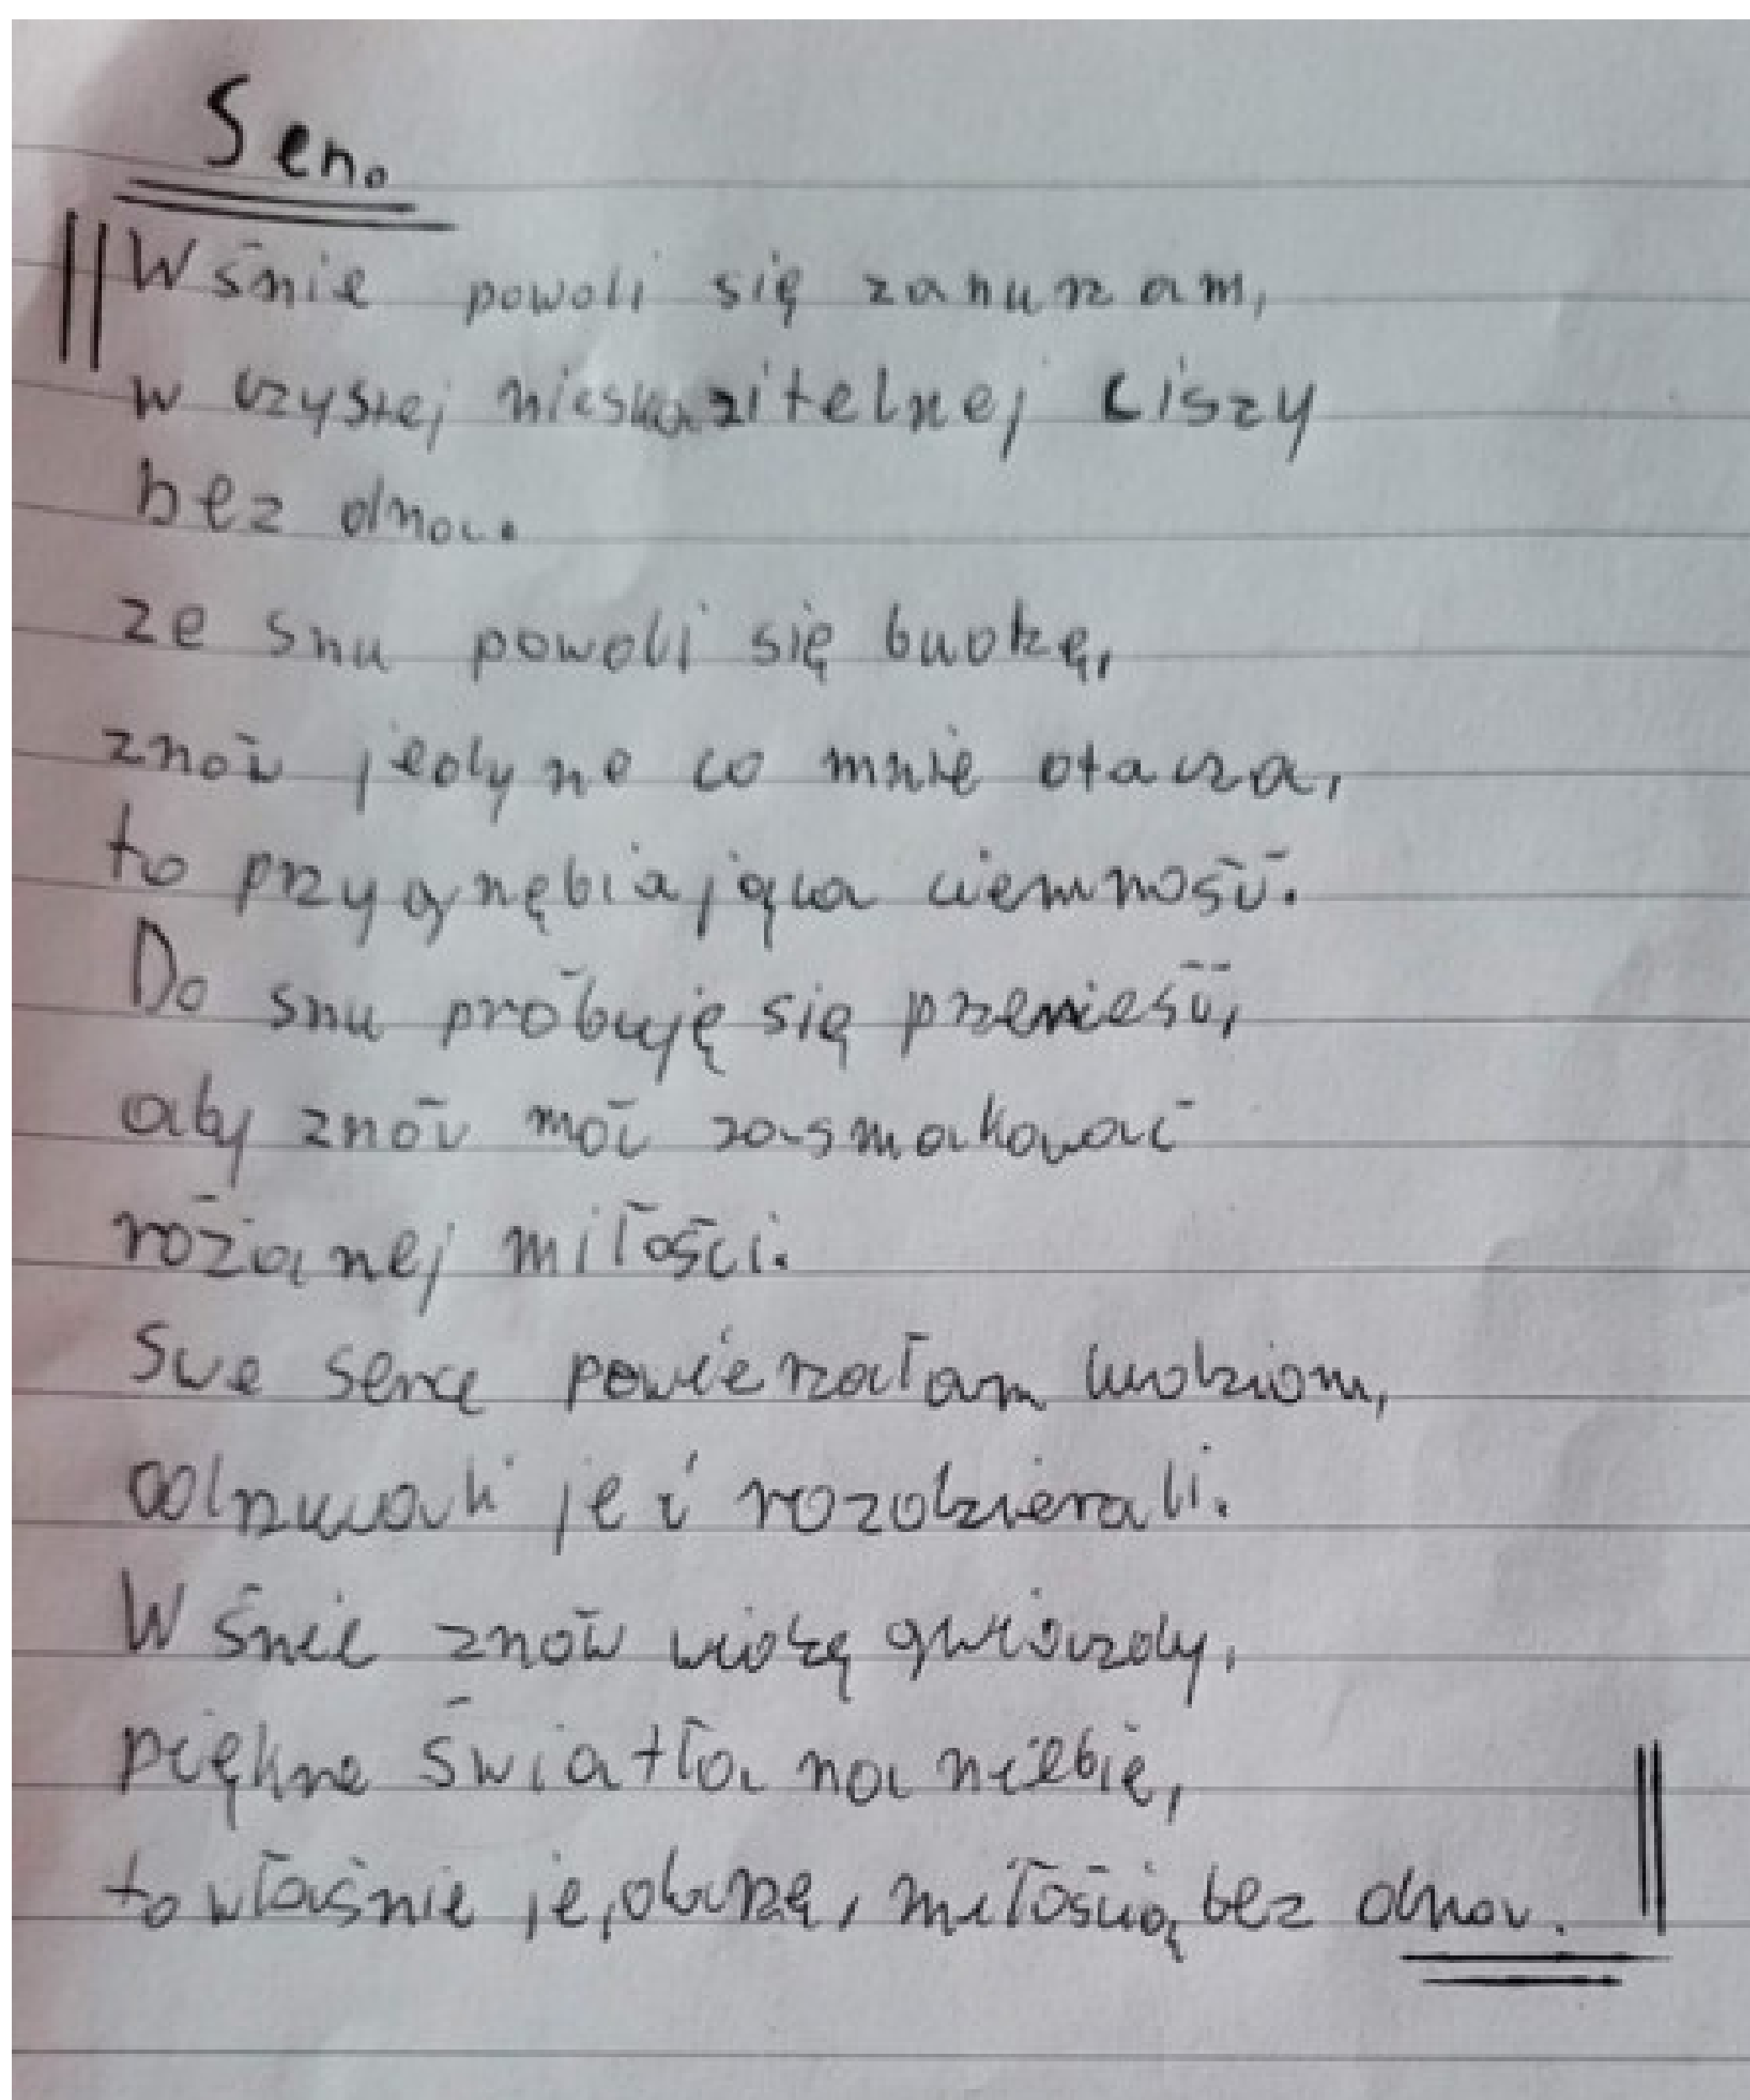 Sen.
W śnie powoli się zanurzam,
w czystej nieskazitelnej ciszy
bez dna.
ze snu powoli się budzę,
znów jedyne co mnie otacza,
to przygnębiająca ciemność.
Do snu próbuję się przenieść,
aby znów móc zasmakować
różanej miłości.
Swe serce powierzałam ludziom,
odrzucali je i rozdzierali.
W śnie znów widzę gwiazdy,
piękne światła na niebie,
to właśnie je, darzę, miłością bez dna.